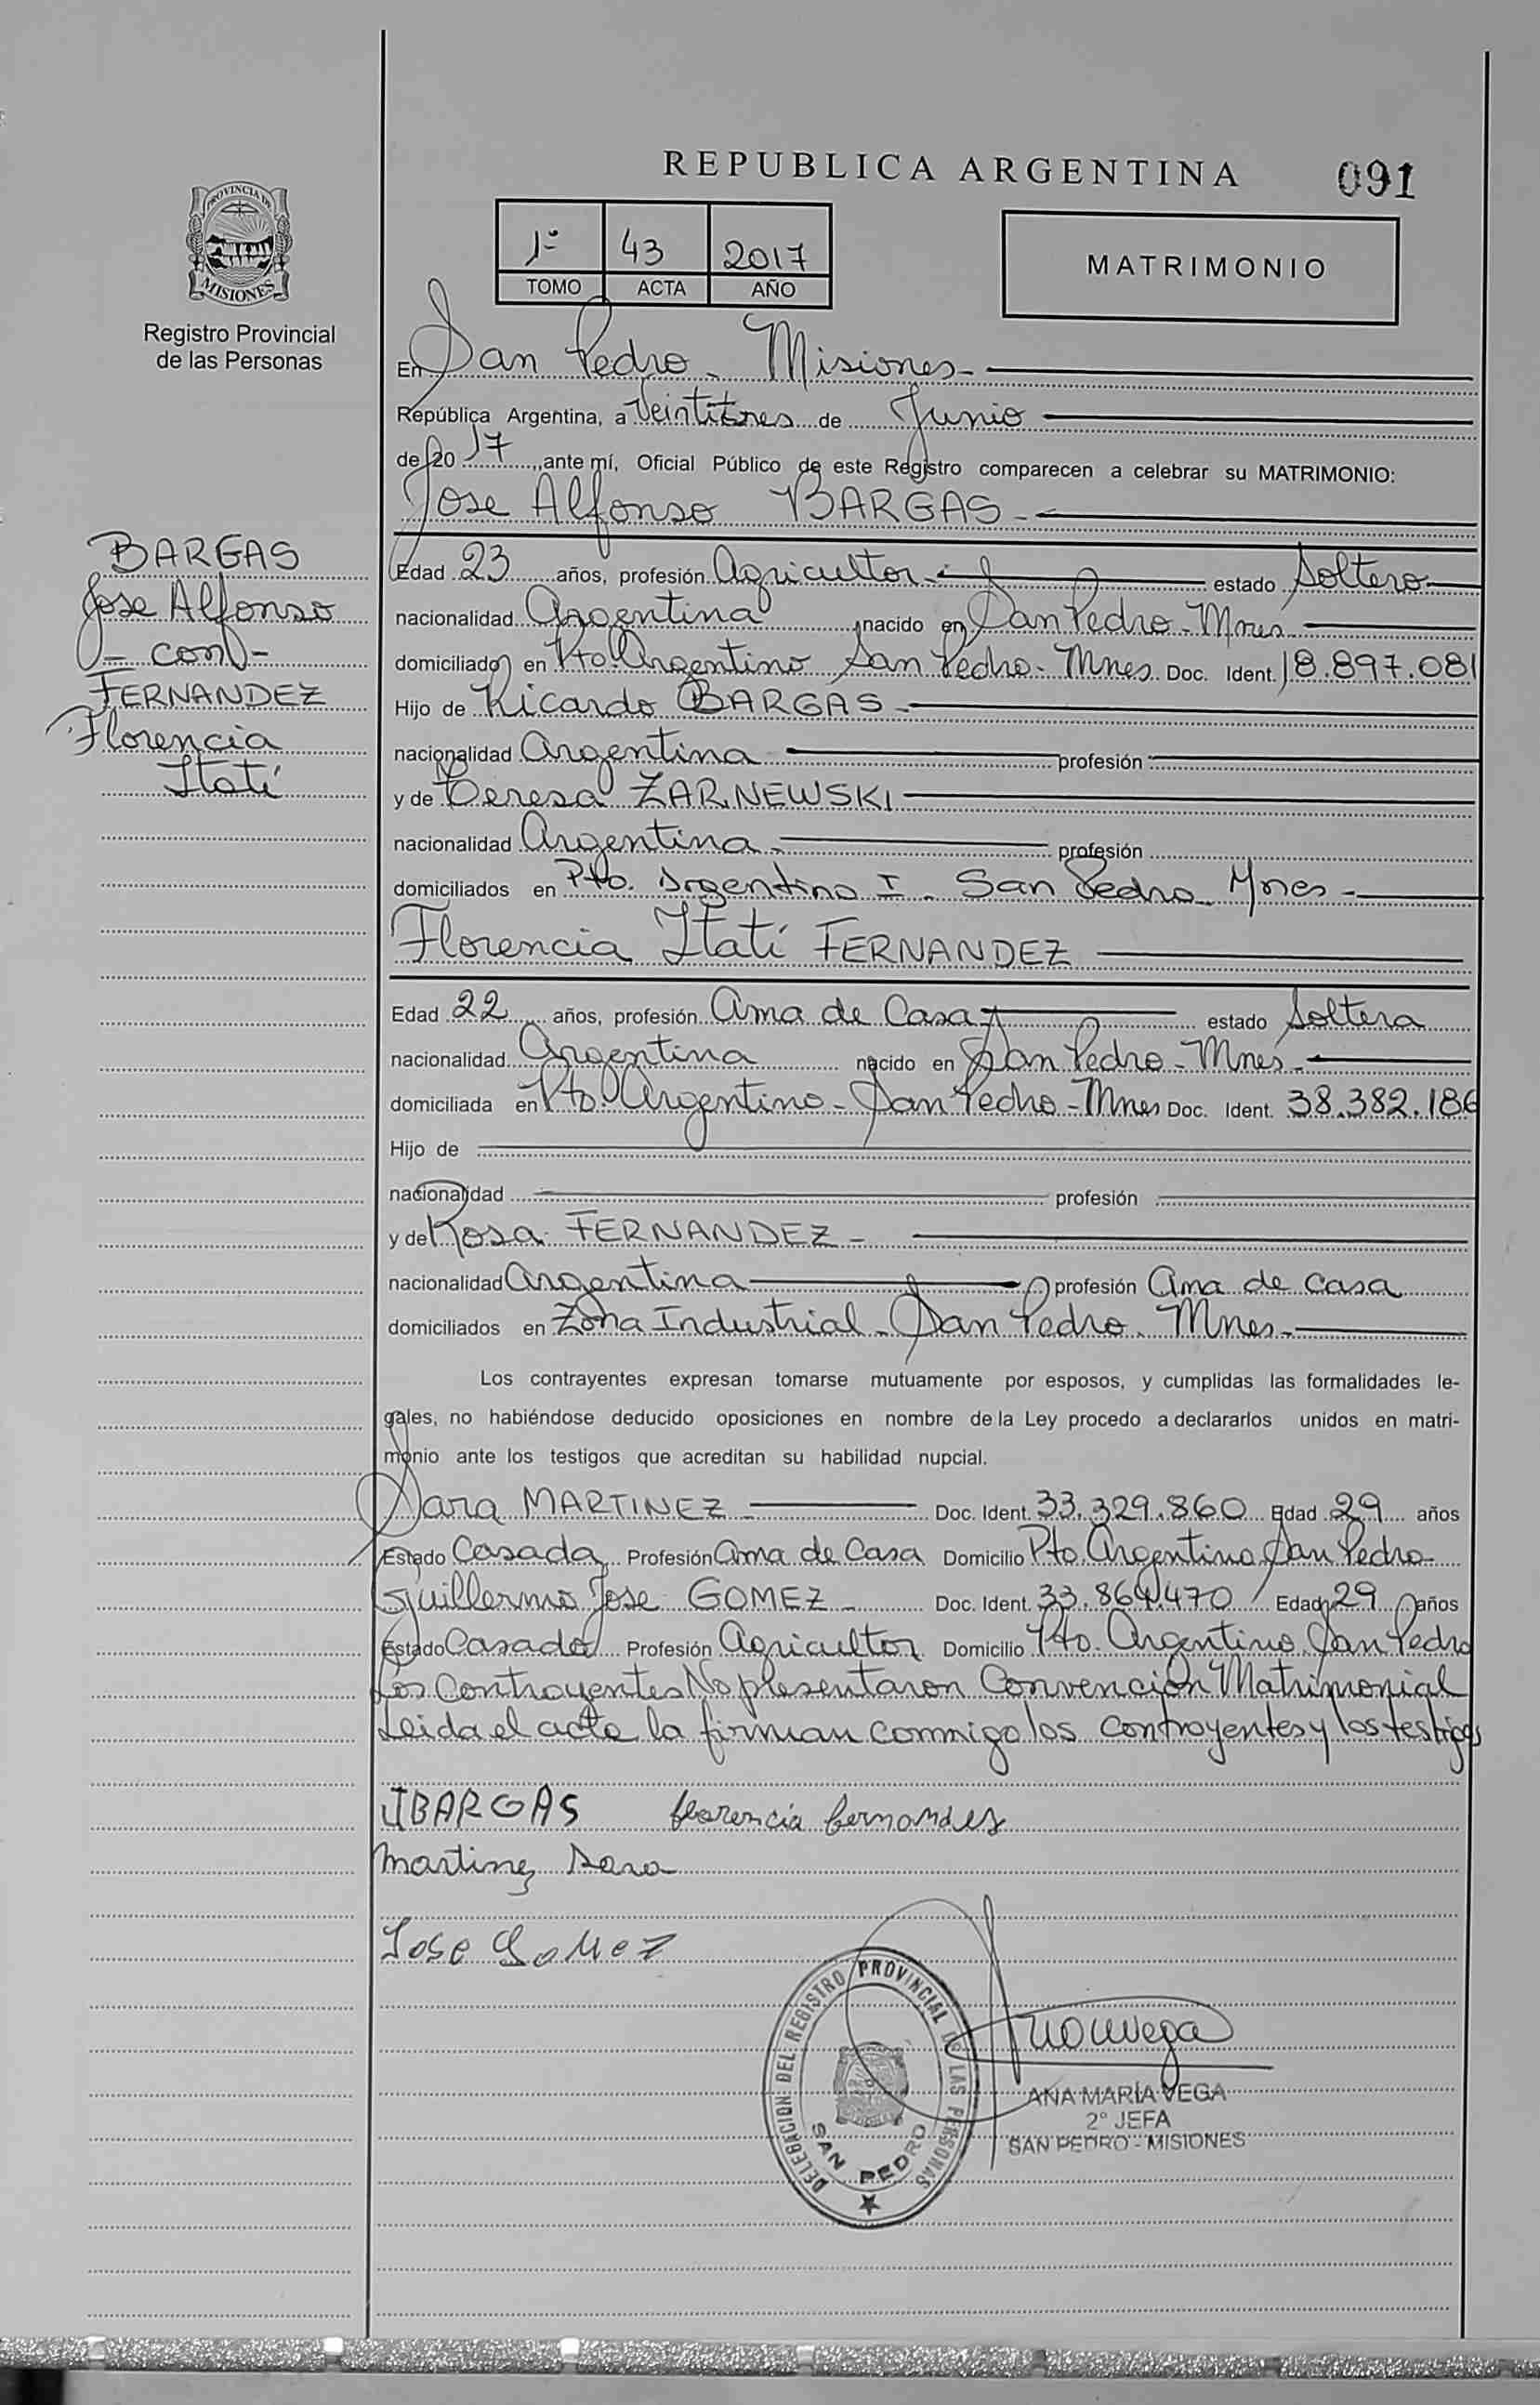 REPUBLICA ARGENTINA 091
PROVINCIA DE
MISIONES
Registro Provincial
de las Personas
1º 43 2017
TOMO ACTA AÑO
MATRIMONIO
En San Pedro - Misiones -
República Argentina, a Veintitres de Junio
de 20 17, ante mí, Oficial Público de este Registro comparecen a celebrar su MATRIMONIO:
Jose Alfonso BARGAS -
BARGAS
Jose Alfonso
- con -
FERNANDEZ
Florencia
Itatí
Edad 23 años, profesión Agricultor - estado Soltero
nacionalidad Argentina nacido en San Pedro - Mnes
domiciliado en Pto Argentino San Pedro - Mnes. Doc. Ident. 18.897.081
Hijo de Ricardo BARGAS -
nacionalidad Argentina profesión
y de Teresa ZARNEWSKI
nacionalidad Argentina - profesión
domiciliados en Pto. Argentino I - San Pedro Mnes -
Florencia Itatí FERNANDEZ
Edad 22 años, profesión Ama de Casa estado Soltera
nacionalidad Argentina nacido en San Pedro - Mnes -
domiciliada en Pto Argentino - San Pedro - Mnes Doc. Ident. 38.382.186
Hijo de
nacionalidad profesión
y de Rosa FERNANDEZ -
nacionalidad Argentina profesión Ama de casa
domiciliados en Zona Industrial - San Pedro - Mnes -
Los contrayentes expresan tomarse mutuamente por esposos, y cumplidas las formalidades le-
gales, no habiéndose deducido oposiciones en nombre de la Ley procedo a declararlos unidos en matri-
monio ante los testigos que acreditan su habilidad nupcial.
Sara MARTINEZ - Doc. Ident. 33.329.860 Edad 29 años
Estado Casada Profesión Ama de Casa Domicilio Pto Argentino San Pedro
Guillermo Jose GOMEZ - Doc. Ident. 33.864.470 Edad 29 años
Estado Casado Profesión Agricultor Domicilio Pto. Argentino San Pedro
Los Contrayentes No presentaron Convención Matrimonial
Leida el acta la firman conmigo los contrayentes y los testigos
JBARGAS florencia fernandez
Martinez Sara
Jose Gomez
DELEGACION DEL REGISTRO PROVINCIAL DE LAS PERSONAS
SAN PEDRO
ANA MARÍA VEGA
2° JEFA
SAN PEDRO - MISIONES